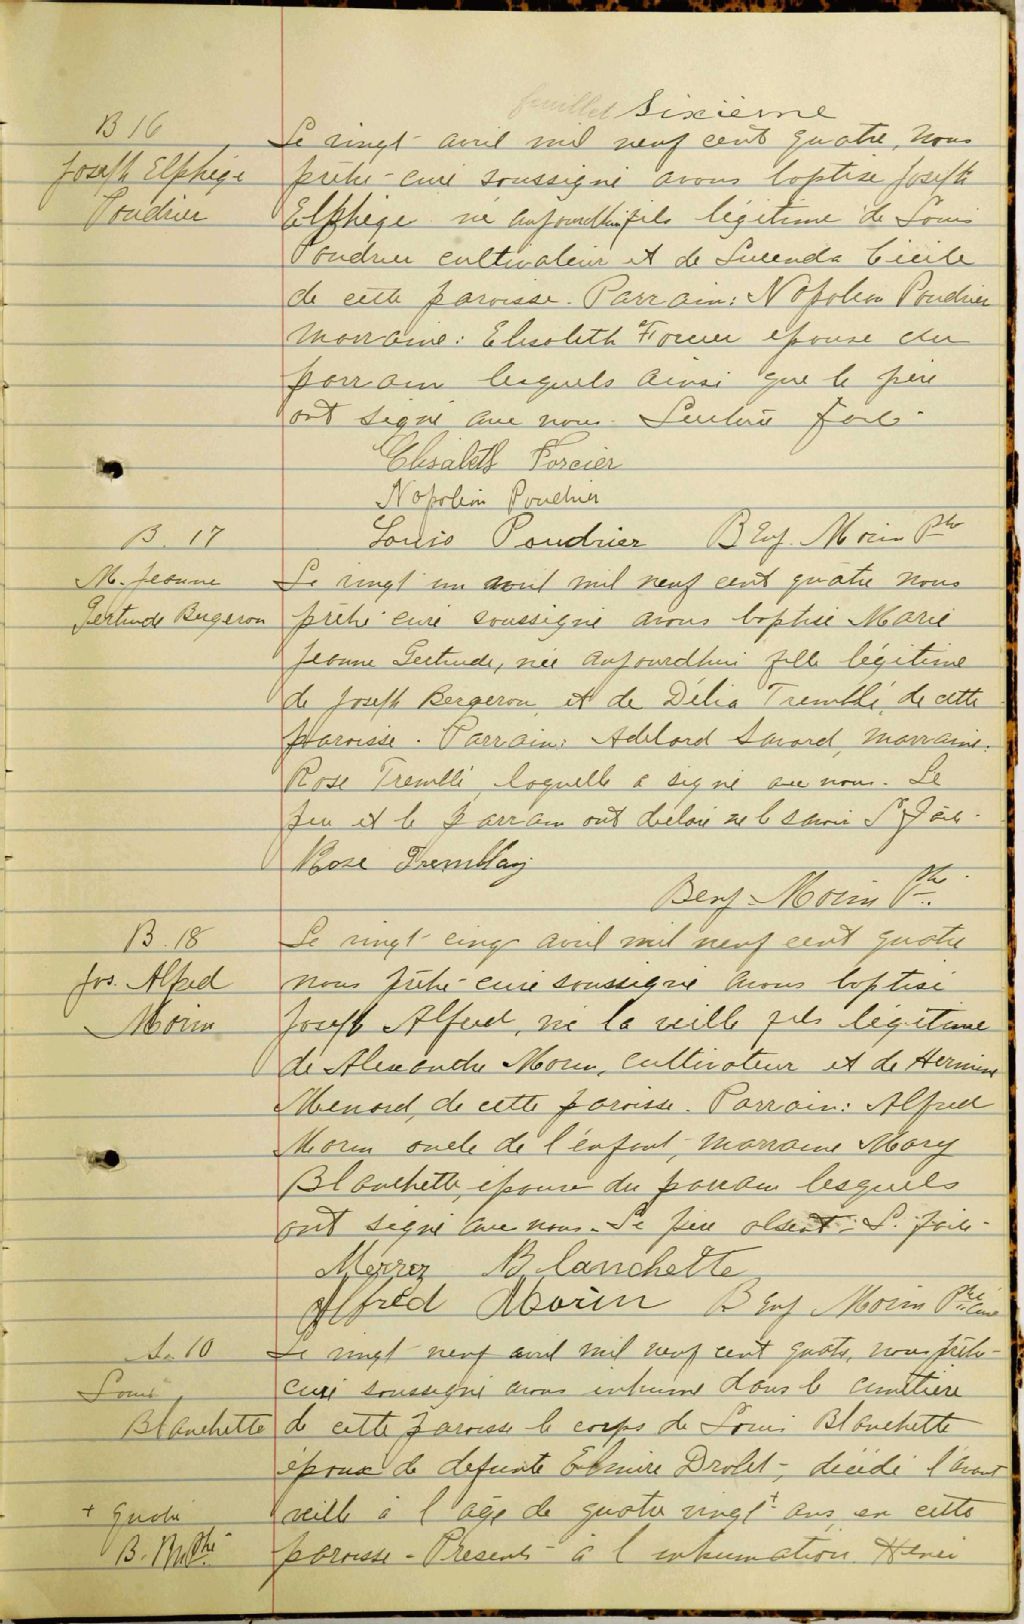 feuillet Sixième
B 16
Joseph Elphège
Poudrier
Le vingt avril mil neuf cent quatre, nous
prêtre-curé soussigné avons baptisé Joseph
Elphège né aujourdhui fils légitime de Louis
Poudrier cultivateur et de Lucenda Cécile
de cette paroisse. Parrain: Napoléon Poudrier
marraine: Elisabeth Forcier épouse du
parrain lesquels ainsi que le père
ont signé avec nous. Lecture faite.
Elisabeth Forcier
Napoléon Poudrier
Louis Poudrier Benj. Morin Ptre
B. 17
M. Jeanne
Gertrude Bergeron
Le vingt un avril mil neuf cent quatre nous
prêtre curé soussigné avons baptisé Marie
Jeanne Gertrude, née aujourdhui fille légitime
de Joseph Bergeron, et de Délia Tremblé, de cette
paroisse. Parrain: Adélard Savard, marraine:
Rose Tremblé, laquelle a signé avec nous. Le
père et le parrain ont déclaré ne le savoir L. faite.
Rose Tremblay
Benj. Morin Ptre.
B. 18
Jos. Alfred
Morin
Le vingt cinq avril mil neuf cent quatre
nous prêtre-curé soussigné avons baptisé
Joseph Alfred, né la veille fils légitime
de Alexandre Morin, cultivateur et de Hermine
Menard, de cette paroisse. Parrain: Alfred
Morin oncle de l'enfant, marraine Mary
Blanchette, épouse du parrain lesquels
ont signé avec nous. Le père absent. L. faite.
Blanchette
Alfred Morin Benj Morin Ptre Curé
S. 10
Louis
Blanchette
Le vingt neuf avril mil neuf cent quatre, nous prêtre-
curé soussigné avons inhumé dans le cimetière
de cette paroisse le corps de Louis Blanchette
époux de defunte Elmire Drolet, décédé l'avant
veille à l'âge de quatre vingt + ans, en cette
+ quatre
B. M. Ptre.
paroisse. Présents à l'inhumation Henri